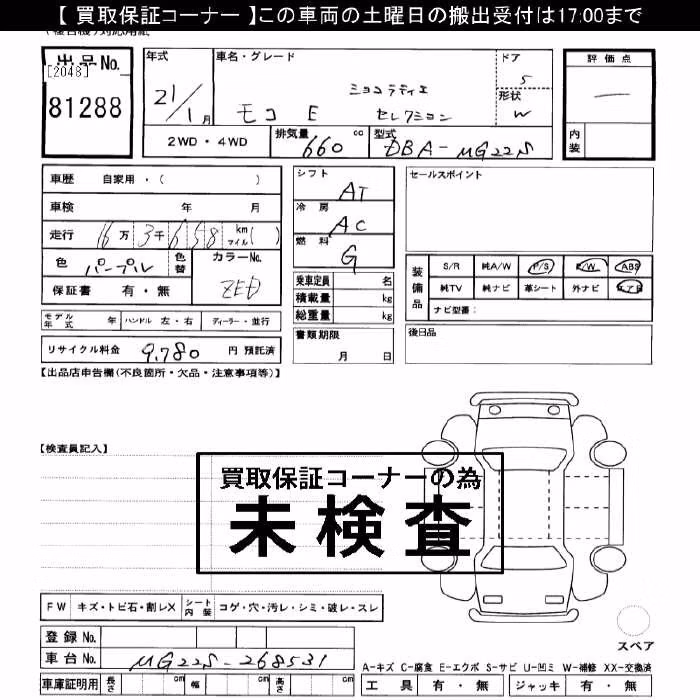 【 買取保証コーナー 】この車両の土曜日の搬出受付は17:00まで
出品No.
[2048]
81288
年式
21/1月
車名・グレード
モコ E
ショコラティエ
セレクション
ドア
5
形状
W
評価点
内装
2WD・4WD
排気量
660 cc
型式
DBA-MG22S
車歴 自家用・( )
車検 年 月
走行 16万3千658 km マイル( )
色 パープル
色替
カラーNo.
ZED
保証書 有・無
モデル年式 年
ハンドル 左・右
ディーラー・並行
リサイクル料金 9,780 円 預託済
シフト
AT
冷房
AC
燃料
G
乗車定員 名
積載量 kg
総重量 kg
書類期限
月 日
セールスポイント
装備品
S/R 純A/W P/S P/W ABS
純TV 純ナビ 革シート 外ナビ エアB
ナビ型番:
後日品
【出品店申告欄(不良箇所・欠品・注意事項等)】
【検査員記入】
買取保証コーナーの為
未検査
FW キズ・トビ石・割レX
シート内装 コゲ・穴・汚レ・シミ・破レ・スレ
登録 No.
車台 No. MG22S-268531
車庫証明用 長さ cm 幅 cm 高さ cm
スペア
A-キズ C-腐食 E-エクボ S-サビ U-凹ミ W-補修 XX-交換済
工具 有・無 ジャッキ 有・無